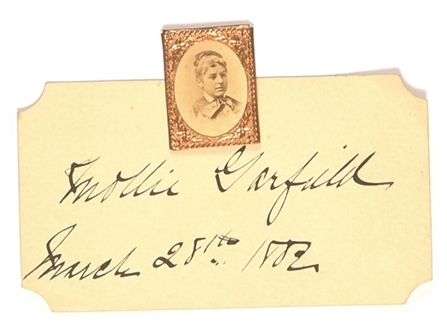 Mollie Garfield
March 28th. 1882.